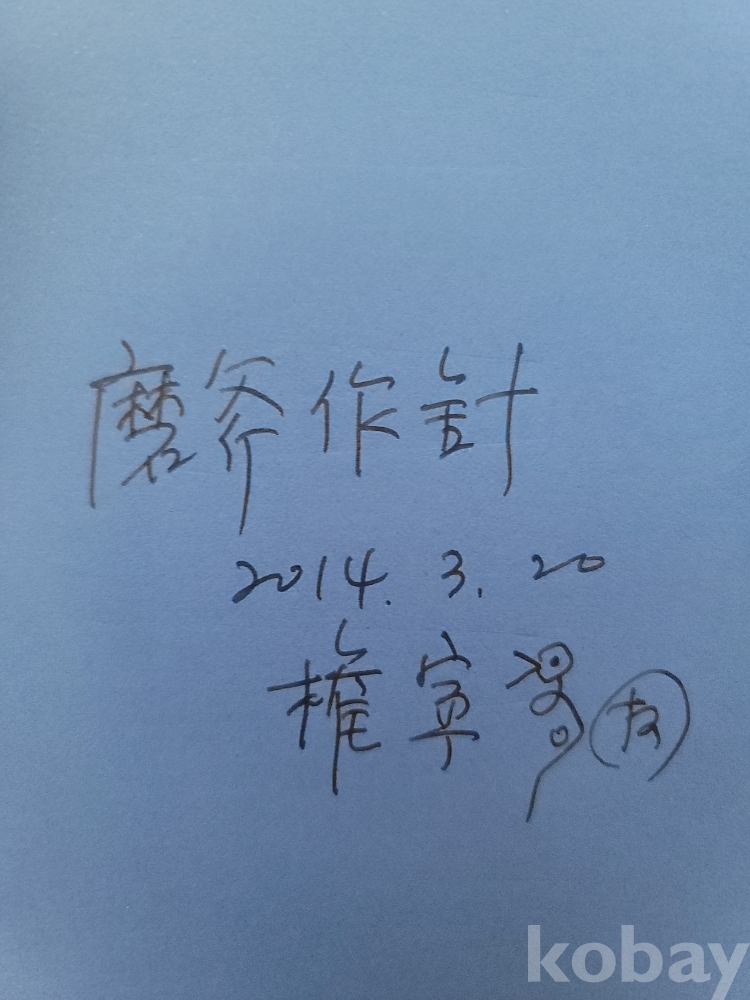 磨斧作針
2014. 3. 20
權寧
kobay